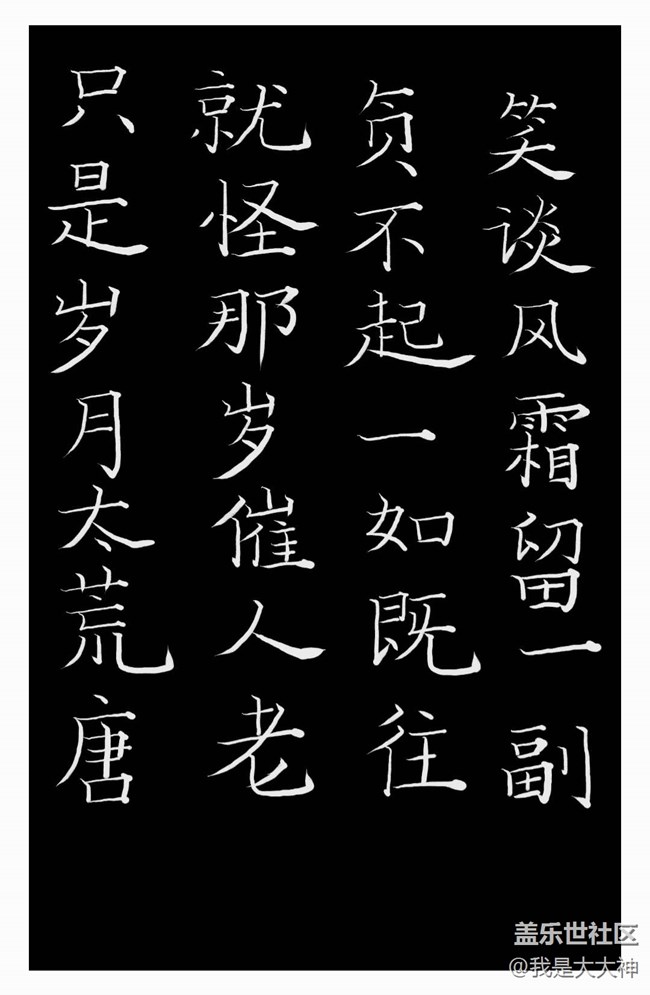 笑谈风霜留一副
负不起一如既往
就怪那岁催人老
只是岁月太荒唐
盖乐世社区
@我是大大神